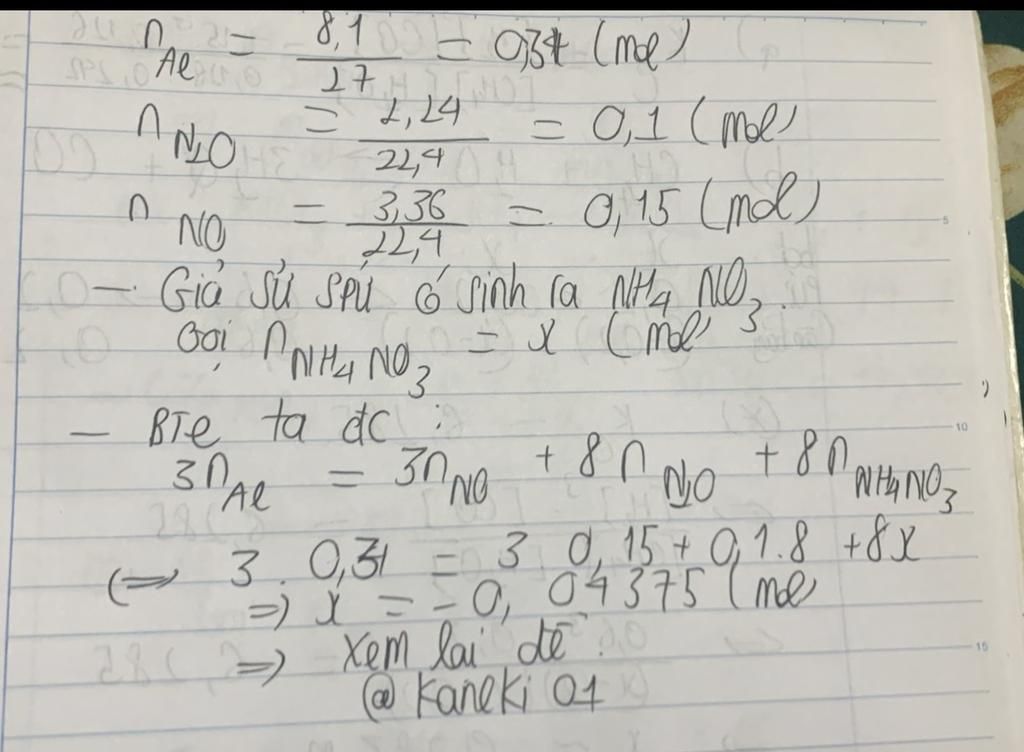 n Al = 8,1 / 27 = 0,31 (mol)
n N2O = 2,24 / 22,4 = 0,1 (mol)
n NO = 3,36 / 22,4 = 0,15 (mol)
− Giả sử spứ có sinh ra NH4 NO3.
Gọi n NH4 NO3 = x (mol
− BTe ta dc :
3n Al = 3n NO + 8 n N2O + 8 n NH4NO3
(=> 3 . 0,31 = 3 0,15 + 0,1.8 + 8x
=> x = − 0, 04375 (mol
=> Xem lai đề .
@ Kaneki 01